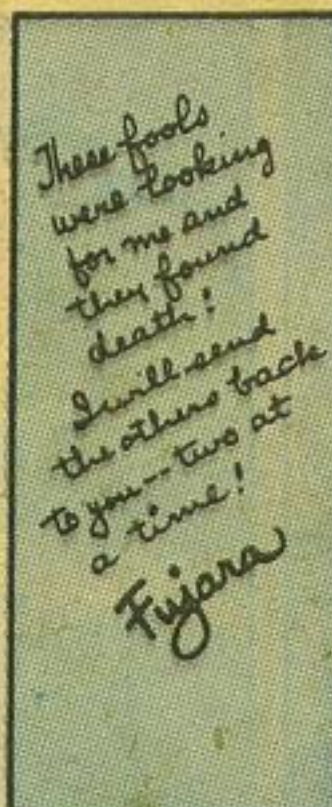 These fools
were looking
for me and
they found
death!
I will send
the others back
to you--two at
a time!
Fujara